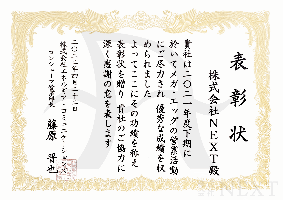 表彰状
株式会社NEXT殿
貴社は二〇二一年度下期に
於いてメガ・エッグの営業活動
にご尽力され優秀な成績を収
められました
よってここにその功績を称え
表彰状を贈り貴社のご協力に
深く感謝の意を表します
株式会社エネルギア・コミュニケーションズ
藤原 晋也
NEXT